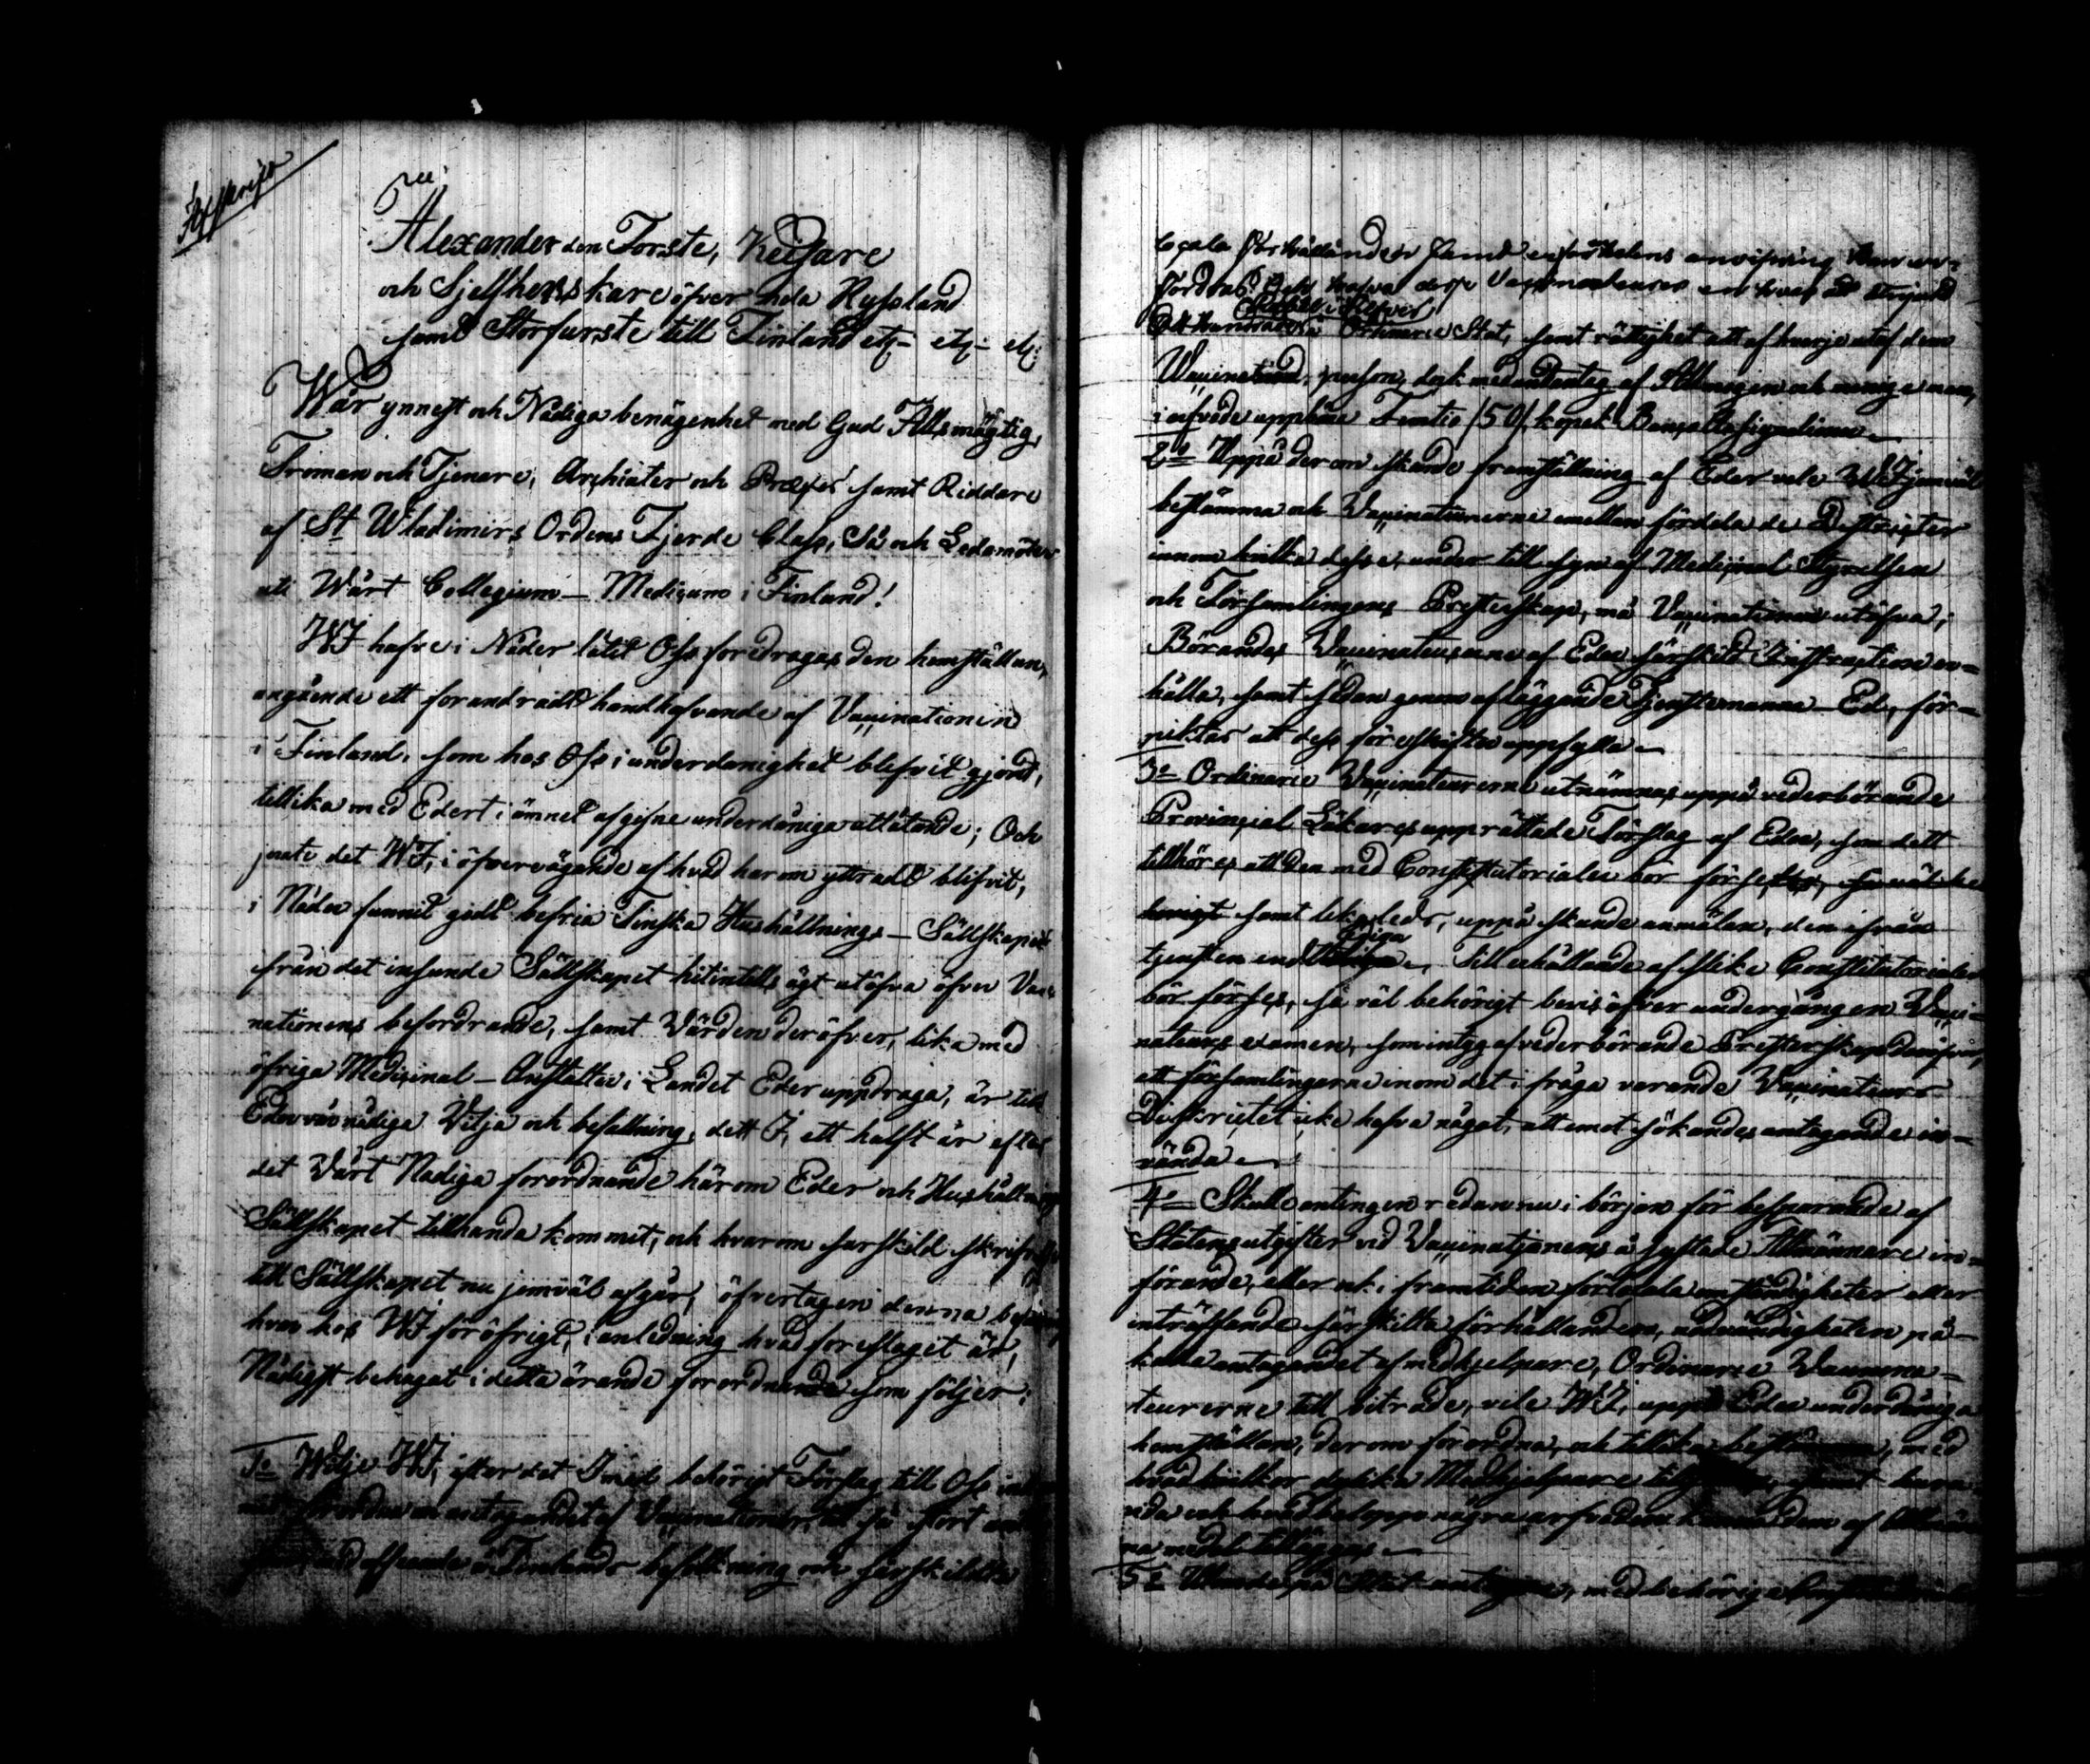 Afskrift
Alexander den Förste, Kejsare
och Sjelfherrskare öfver hela Ryssland
samt Storfurste till Finland etc. etc. etc.
Wår ynnest och Nådiga benägenhet med Gud Allsmägtig,
Troman och Tjenare, Archiater och Præses samt Riddare
af St Wladimirs Ordens Fjerde Class, Så och Ledamöter
uti Wårt Collegium-Medicum i Finland!
WJ hafve i Nåder låtit Oss föredragas den hemställan,
angående ett förändradt handhafvande af Vaccinationen
i Finland, som hos Oss i underdånighet blefvit gjord,
tillika med Edert i ämnet afgifne underdåniga utlåtande; Och
det WJ, i öfvervägande af hvad härom yttradt blifvit,
i Nåder funnit godt befria Finska Hushållnings-Sällskapet
ifrån det inseende Sällskapet hitintills ägt utöfva öfver Vacci-
nationens befordrande, samt Vården deröfver, lika med
öfriga Medicinal-Anstalter i Landet Eder uppdraga, är till
Eder vår nådiga Vilja och befallning, dett J, ett halft år efter
det Vårt Nådiga förordnande härom Eder och Hushållnings
Sällskapet tillhanda kommit, och hvarom särskild skrifvelse
till Sällskapet nu jemväl afgår, öfvertagen denna befattning
hvar hos WJ för öfrigt, i anledning hvad föreslaget är,
Nådigst behagat i detta ärande förordnande som följer:
1o Wilje WJ, efter det J med behörigt Förslag till Oss
förordna om antagandet af Vaccinationer, till så stort
afseende å Finlands befolkning och särskildta
locala förhållanden samt erfarenhetens anvisning kan er-
fordras. Och hafva desse Vaccinateurer en hvar att åtnjuta
Rubel Silfver
Ett Hundrade å Ordinarie Stat, samt rättighet att af hvarje utaf dem
Vaccinerad, person, dock med undantag af Allmogen och menige man,
i arfvode uppbära Femtio /50/ kopek Banco Assignationer.
2o Uppå derom skeende framställning af Eder vele WJ jemväl
bestämma och Vaccinationerne emellan fördela de Districter
innom hvilka desse, under tillsyn af Medicinal Styrelsen
och Församlingens Presterskap, må Vaccinationen utöfva;
Börandes Vaccinateurerne af Eder särskild Instruction er-
hålla, samt sedan genom afläggande Tjenstemanna-Ed, för-
pliktas att dess föreskrifter uppfylla.
3o Ordinarie Vaccinateurerne utnämnas uppå vederbörande
Provincial Läkares upprättade Förslag af Eder, som dett
tillhörer, att den med Constitutorialer bör förses,
samt likaledes, uppå skeende anmälan, den ifrån
tjensten entlediga. Till erhållande af slike Constitutorialer
bör förses, så väl behörigt bevis öfver undergången Vacci-
nateurs examen, som intyg af vederbörande Presterskap derifrån,
att församlingarne inom det i fråga varande Vaccinateurs-
Districtet icke hafva något, att emot sökandes antagande in-
vända.
4o Skulle antingen redan nu i början för besparande af
Statens utgifter vid Vaccinationens å syftade Allmännare in-
förande, eller ock i framtiden för locala omständigheter eller
inträffande särskilta förhållanden, nödvändigheten på-
kalla antagandet af medhjelpare, Ordinarie Vaccina-
teurerne till biträde, vele WJ, uppå Eder underdåniga
hemställan, derom förordna, och tillika bestämma, med
hvad vilkor dylika Medhjelpare samt huru-
vida och hvad belopp några arfvoden dem af Allmän-
na medel tilläggas.
5o på Stat antagne, med behörige